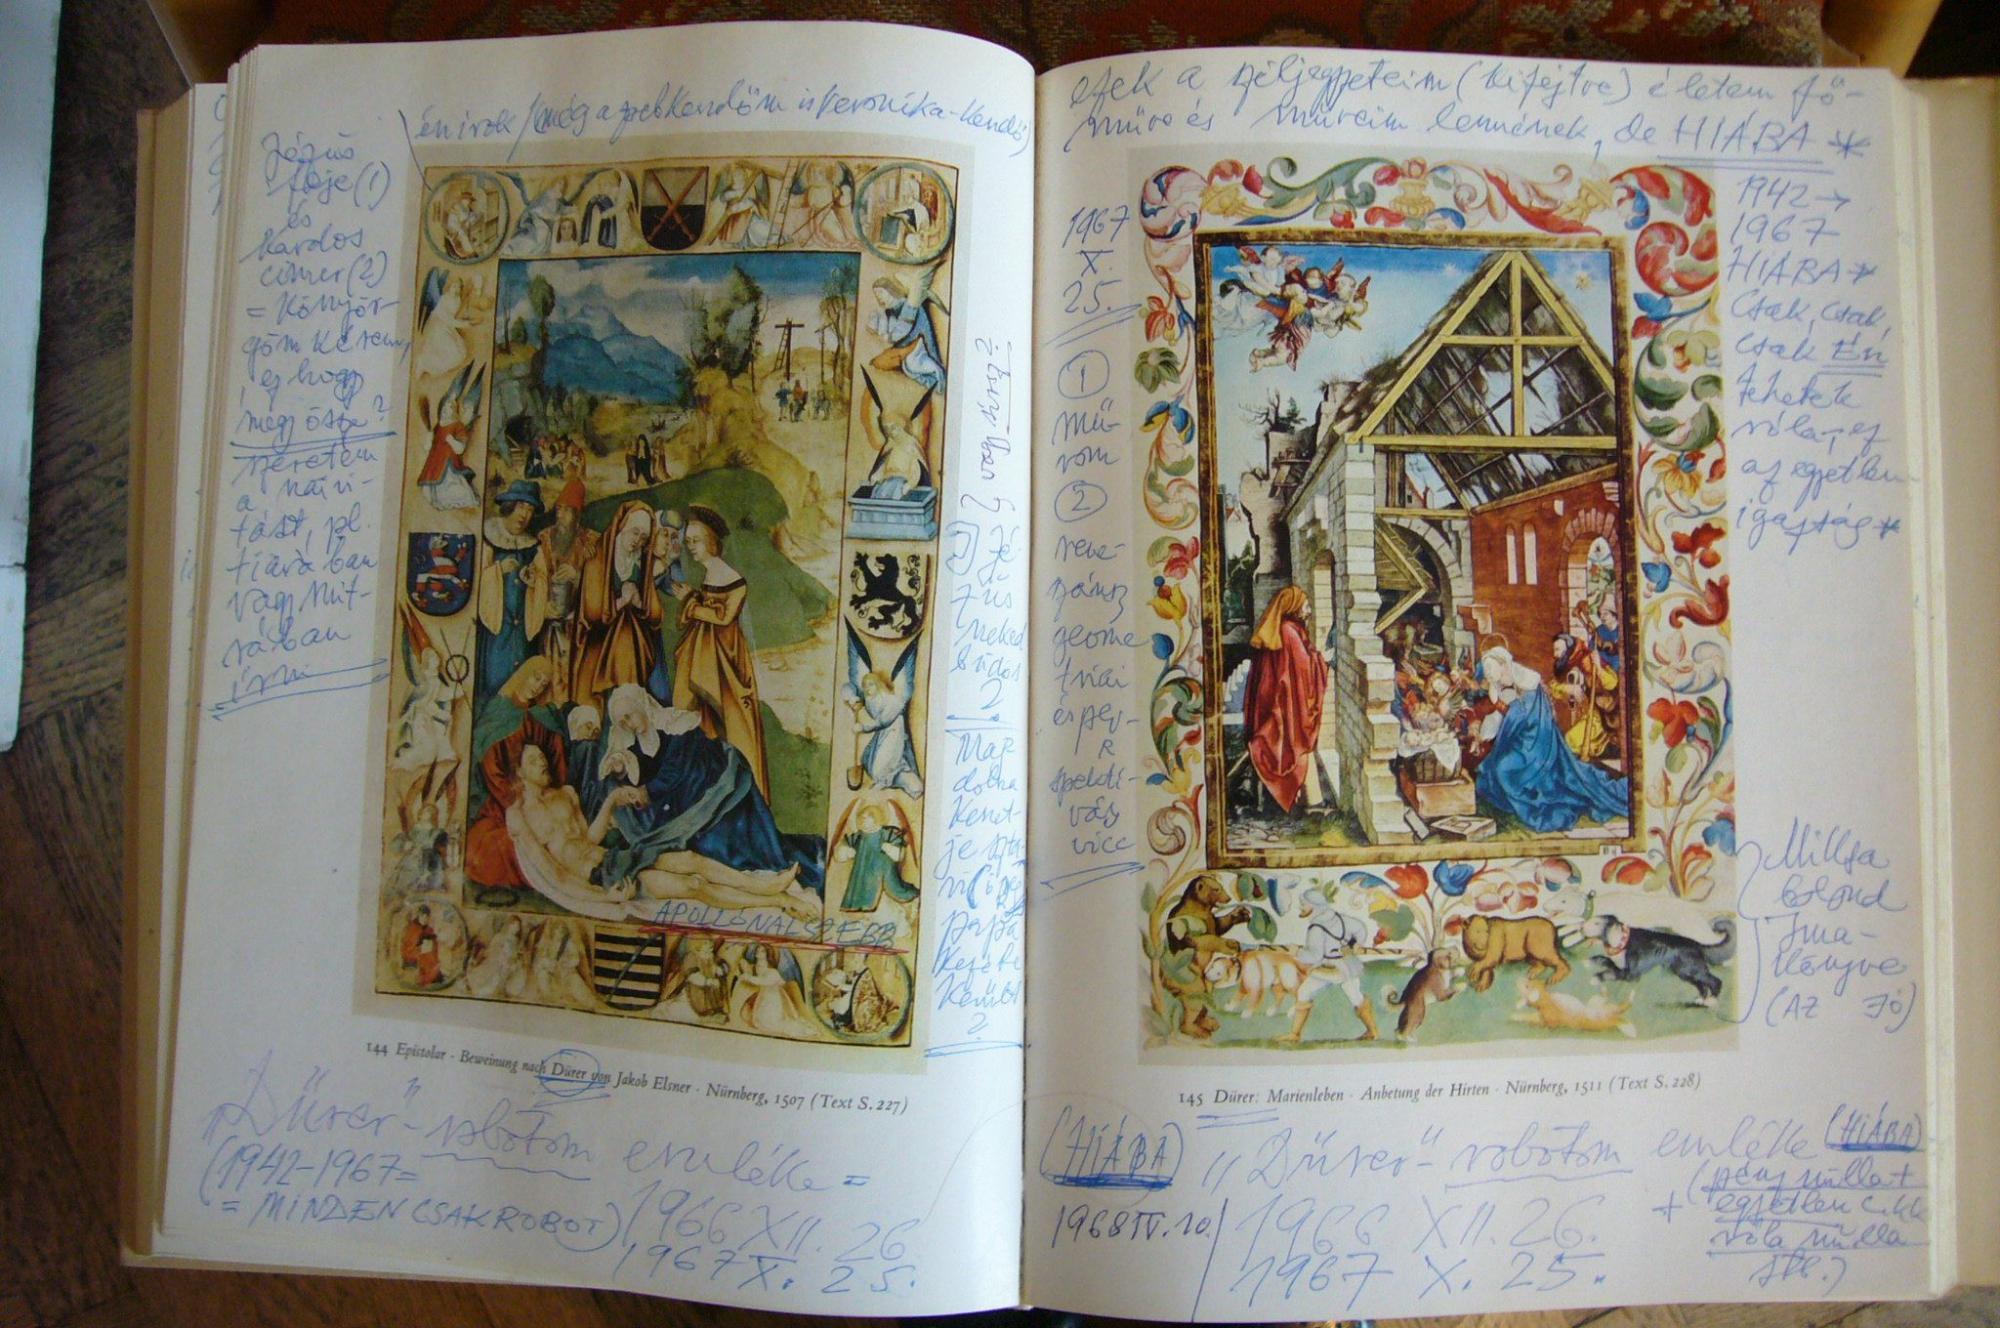 én írok/még a zsebkendőm is Veronika-kendő
Jézus
feje (1)
és
kardos
címer (2)
= könyör-
göm kérem,
ez hogy
megy össze?
szeretem
a naivi-
tást, pl.
tiarában
vagy mit-
rában
írni
Jé-
zus
neked
büdös
?
Mag
dolna
papa
?
APOLLÓNAL SZEBB
144 Epistolar · Beweinung nach Dürer von Jakob Elsner · Nürnberg, 1507 (Text S. 227)
„Dürer"-robotom emléke =
(1942–1967=
= MINDEN CSAK ROBOT)
1966 XII. 26
1967 X. 25.
ezek a széljegyzeteim (kifejtve) életem fő-
műve és műveim lennének, de HIÁBA *
1967
X.
25.
1
mű-
rom
2
rene-
zánsz
geome
triai
és per-
R
spekti-
vás
vicc
1942 →
1967
HIÁBA *
Csak, csak,
csak Én
tehetek
róla, ez
az egyetlen
igazság *
Miksa
bolond
Ima-
könyve
(AZ JÓ)
145 Dürer: Marienleben · Anbetung der Hirten · Nürnberg, 1511 (Text S. 228)
(HIÁBA) „Dürer"-robotom emléke (HIÁBA)
1968 IV. 10.
1966 XII. 26.
1967 X. 25.
(pénz nulla +
+ egyetlen cikk
róla nulla
stb.)